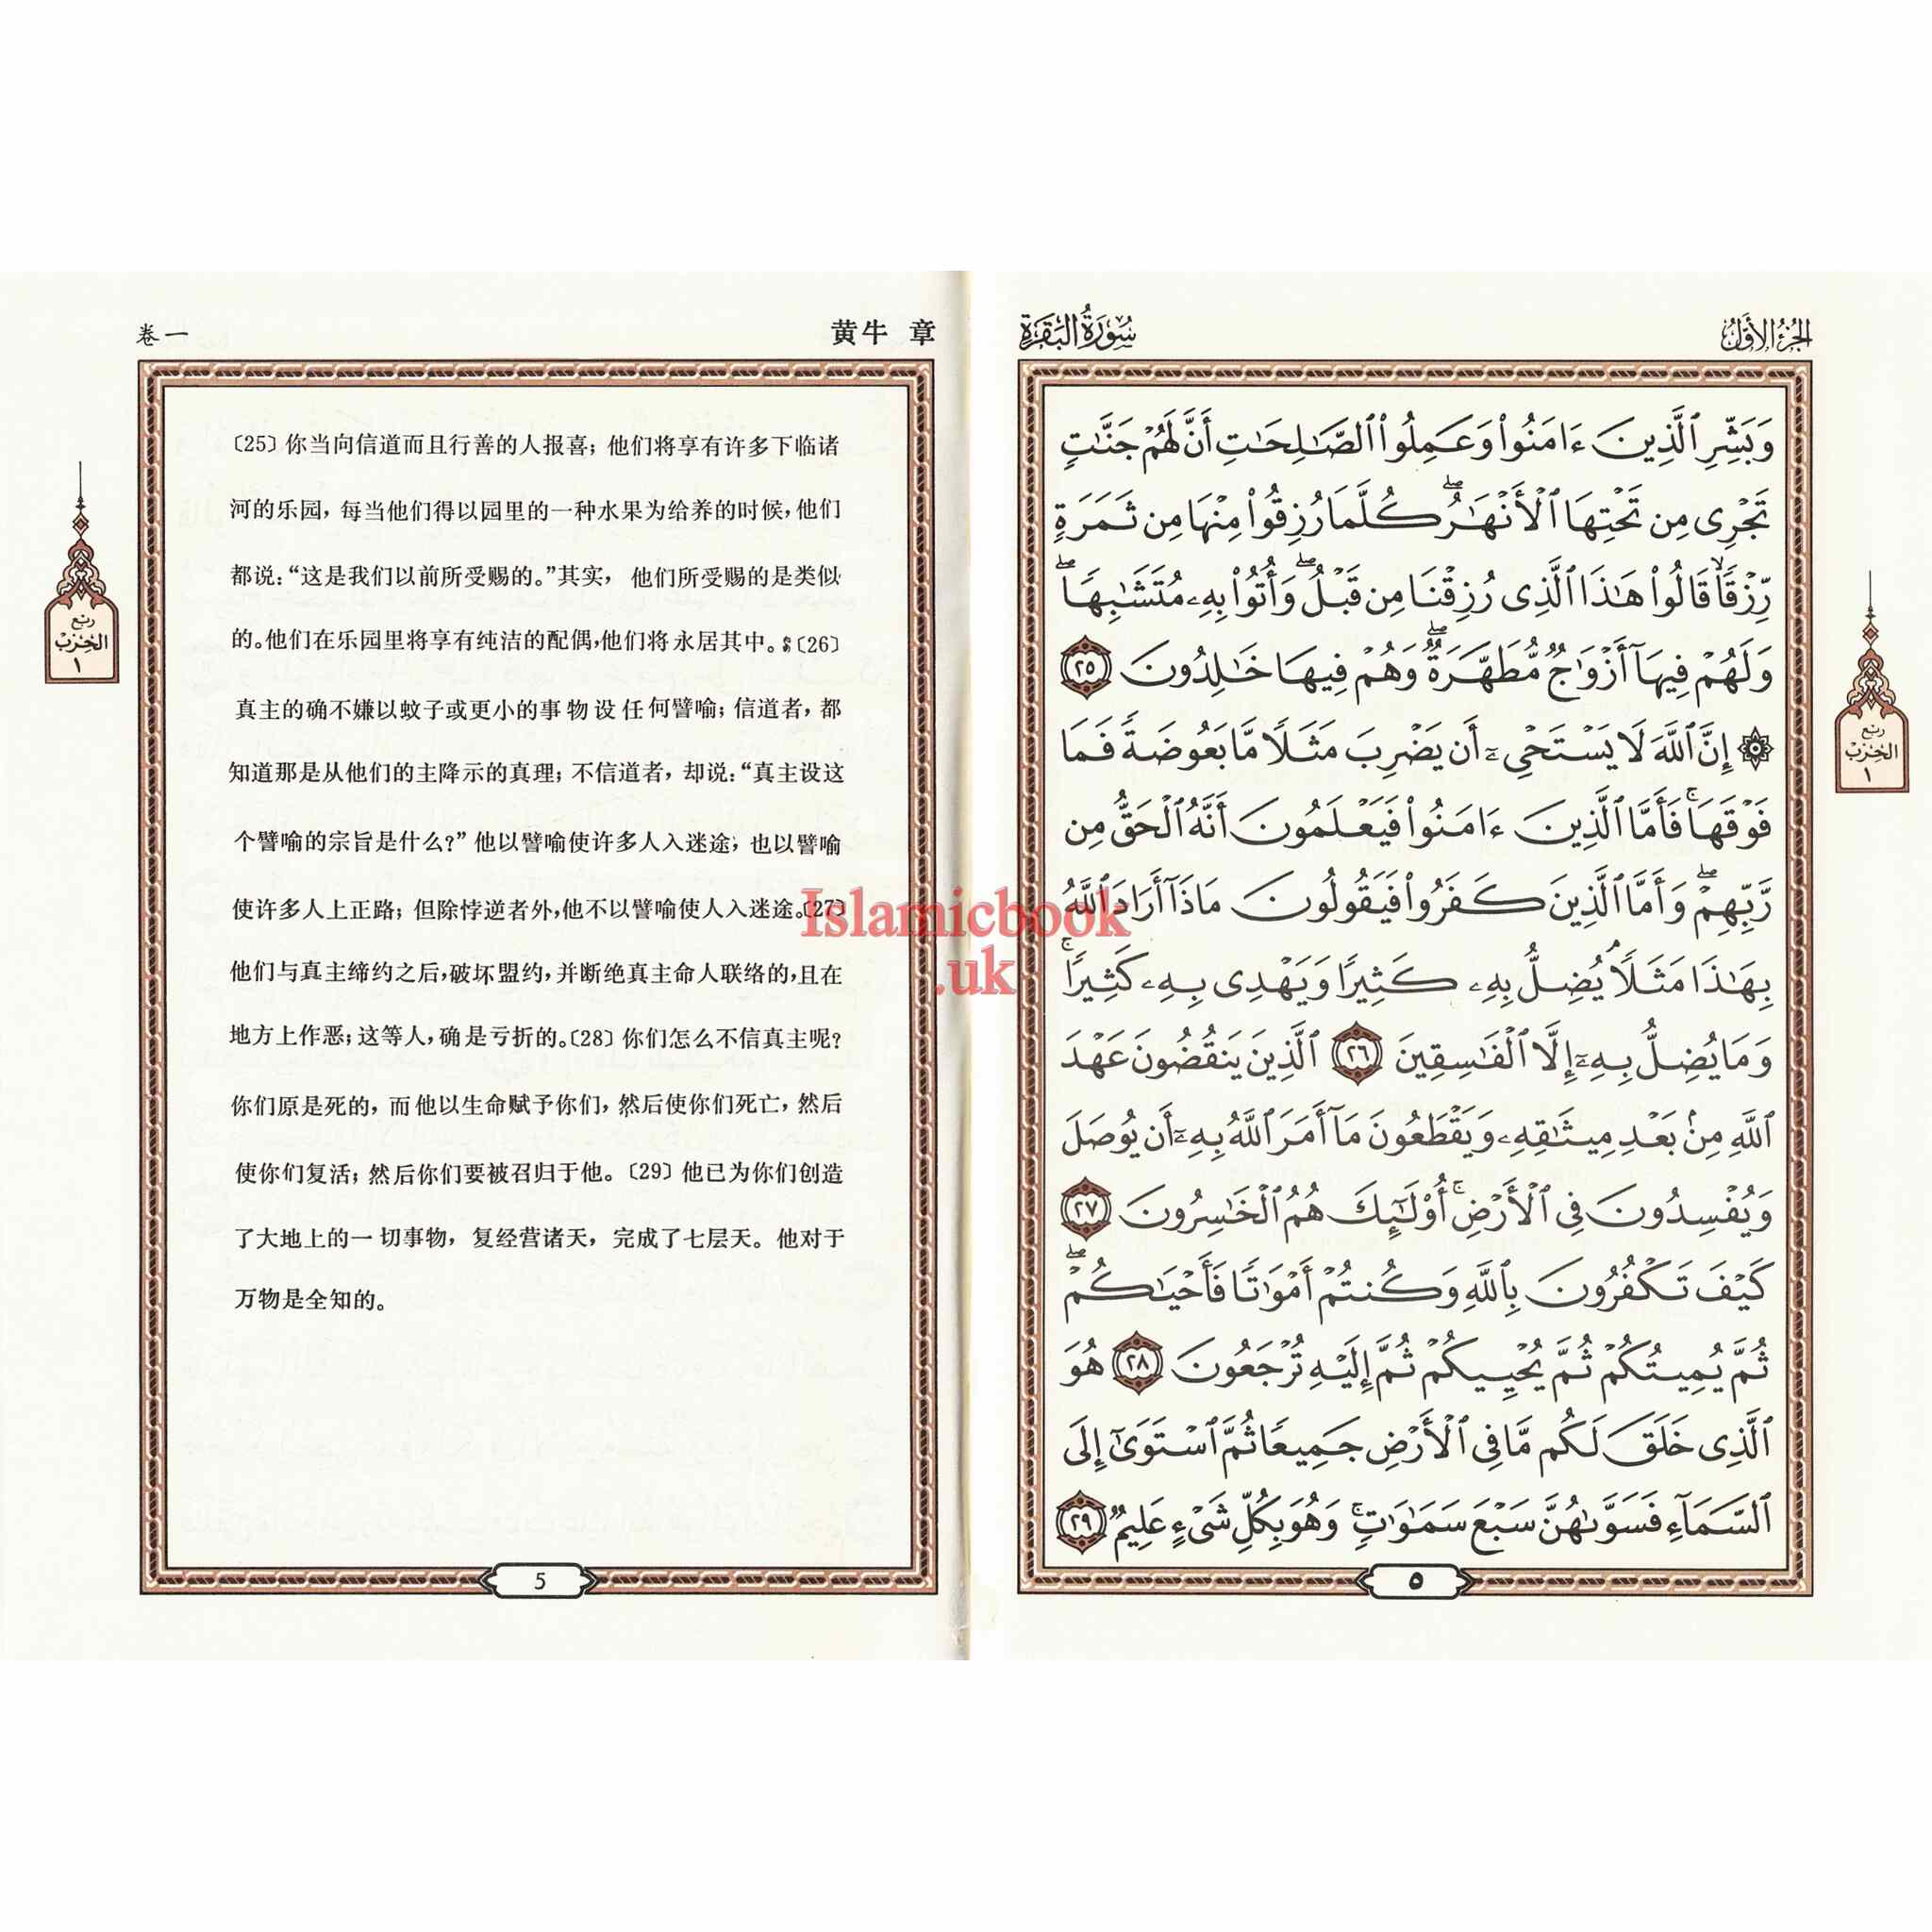 卷一
黄牛 章
〔25〕你当向信道而且行善的人报喜；他们将享有许多下临诸
河的乐园，每当他们得以园里的一种水果为给养的时候，他们
都说：“这是我们以前所受赐的。”其实，他们所受赐的是类似
的。他们在乐园里将享有纯洁的配偶，他们将永居其中。〔26〕
真主的确不嫌以蚊子或更小的事物设任何譬喻；信道者，都
知道那是从他们的主降示的真理；不信道者，却说：“真主设这
个譬喻的宗旨是什么？”他以譬喻使许多人入迷途，也以譬喻
使许多人上正路；但除悖逆者外，他不以譬喻使人入迷途。〔27〕
他们与真主缔约之后，破坏盟约，并断绝真主命人联络的，且在
地方上作恶；这等人，确是亏折的。〔28〕你们怎么不信真主呢？
你们原是死的，而他以生命赋予你们，然后使你们死亡，然后
使你们复活；然后你们要被召归于他。〔29〕他已为你们创造
了大地上的一切事物，复经营诸天，完成了七层天。他对于
万物是全知的。
5
ربع
الحزب
١
الجزء الأول
سورة البقرة
وَبَشِّرِ ٱلَّذِينَ ءَامَنُوا۟ وَعَمِلُوا۟ ٱلصَّـٰلِحَـٰتِ أَنَّ لَهُمْ جَنَّـٰتٍ
تَجْرِى مِن تَحْتِهَا ٱلْأَنْهَـٰرُ ۖ كُلَّمَا رُزِقُوا۟ مِنْهَا مِن ثَمَرَةٍ
رِّزْقًا ۙ قَالُوا۟ هَـٰذَا ٱلَّذِى رُزِقْنَا مِن قَبْلُ ۖ وَأُتُوا۟ بِهِۦ مُتَشَـٰبِهًا ۖ
وَلَهُمْ فِيهَآ أَزْوَٰجٌ مُّطَهَّرَةٌ ۖ وَهُمْ فِيهَا خَـٰلِدُونَ ٢٥
۞ إِنَّ ٱللَّهَ لَا يَسْتَحْىِۦٓ أَن يَضْرِبَ مَثَلًا مَّا بَعُوضَةً فَمَا
فَوْقَهَا ۚ فَأَمَّا ٱلَّذِينَ ءَامَنُوا۟ فَيَعْلَمُونَ أَنَّهُ ٱلْحَقُّ مِن
رَّبِّهِمْ ۖ وَأَمَّا ٱلَّذِينَ كَفَرُوا۟ فَيَقُولُونَ مَاذَآ أَرَادَ ٱللَّهُ
بِهَـٰذَا مَثَلًا ۘ يُضِلُّ بِهِۦ كَثِيرًا وَيَهْدِى بِهِۦ كَثِيرًا ۚ
وَمَا يُضِلُّ بِهِۦٓ إِلَّا ٱلْفَـٰسِقِينَ ٢٦ ٱلَّذِينَ يَنقُضُونَ عَهْدَ
ٱللَّهِ مِنۢ بَعْدِ مِيثَـٰقِهِۦ وَيَقْطَعُونَ مَآ أَمَرَ ٱللَّهُ بِهِۦٓ أَن يُوصَلَ
وَيُفْسِدُونَ فِى ٱلْأَرْضِ ۚ أُو۟لَـٰٓئِكَ هُمُ ٱلْخَـٰسِرُونَ ٢٧
كَيْفَ تَكْفُرُونَ بِٱللَّهِ وَكُنتُمْ أَمْوَٰتًا فَأَحْيَـٰكُمْ ۖ
ثُمَّ يُمِيتُكُمْ ثُمَّ يُحْيِيكُمْ ثُمَّ إِلَيْهِ تُرْجَعُونَ ٢٨ هُوَ
ٱلَّذِى خَلَقَ لَكُم مَّا فِى ٱلْأَرْضِ جَمِيعًا ثُمَّ ٱسْتَوَىٰٓ إِلَى
ٱلسَّمَآءِ فَسَوَّىٰهُنَّ سَبْعَ سَمَـٰوَٰتٍ ۚ وَهُوَ بِكُلِّ شَىْءٍ عَلِيمٌ ٢٩
٥
ربع
الحزب
١
Islamicbook
.uk